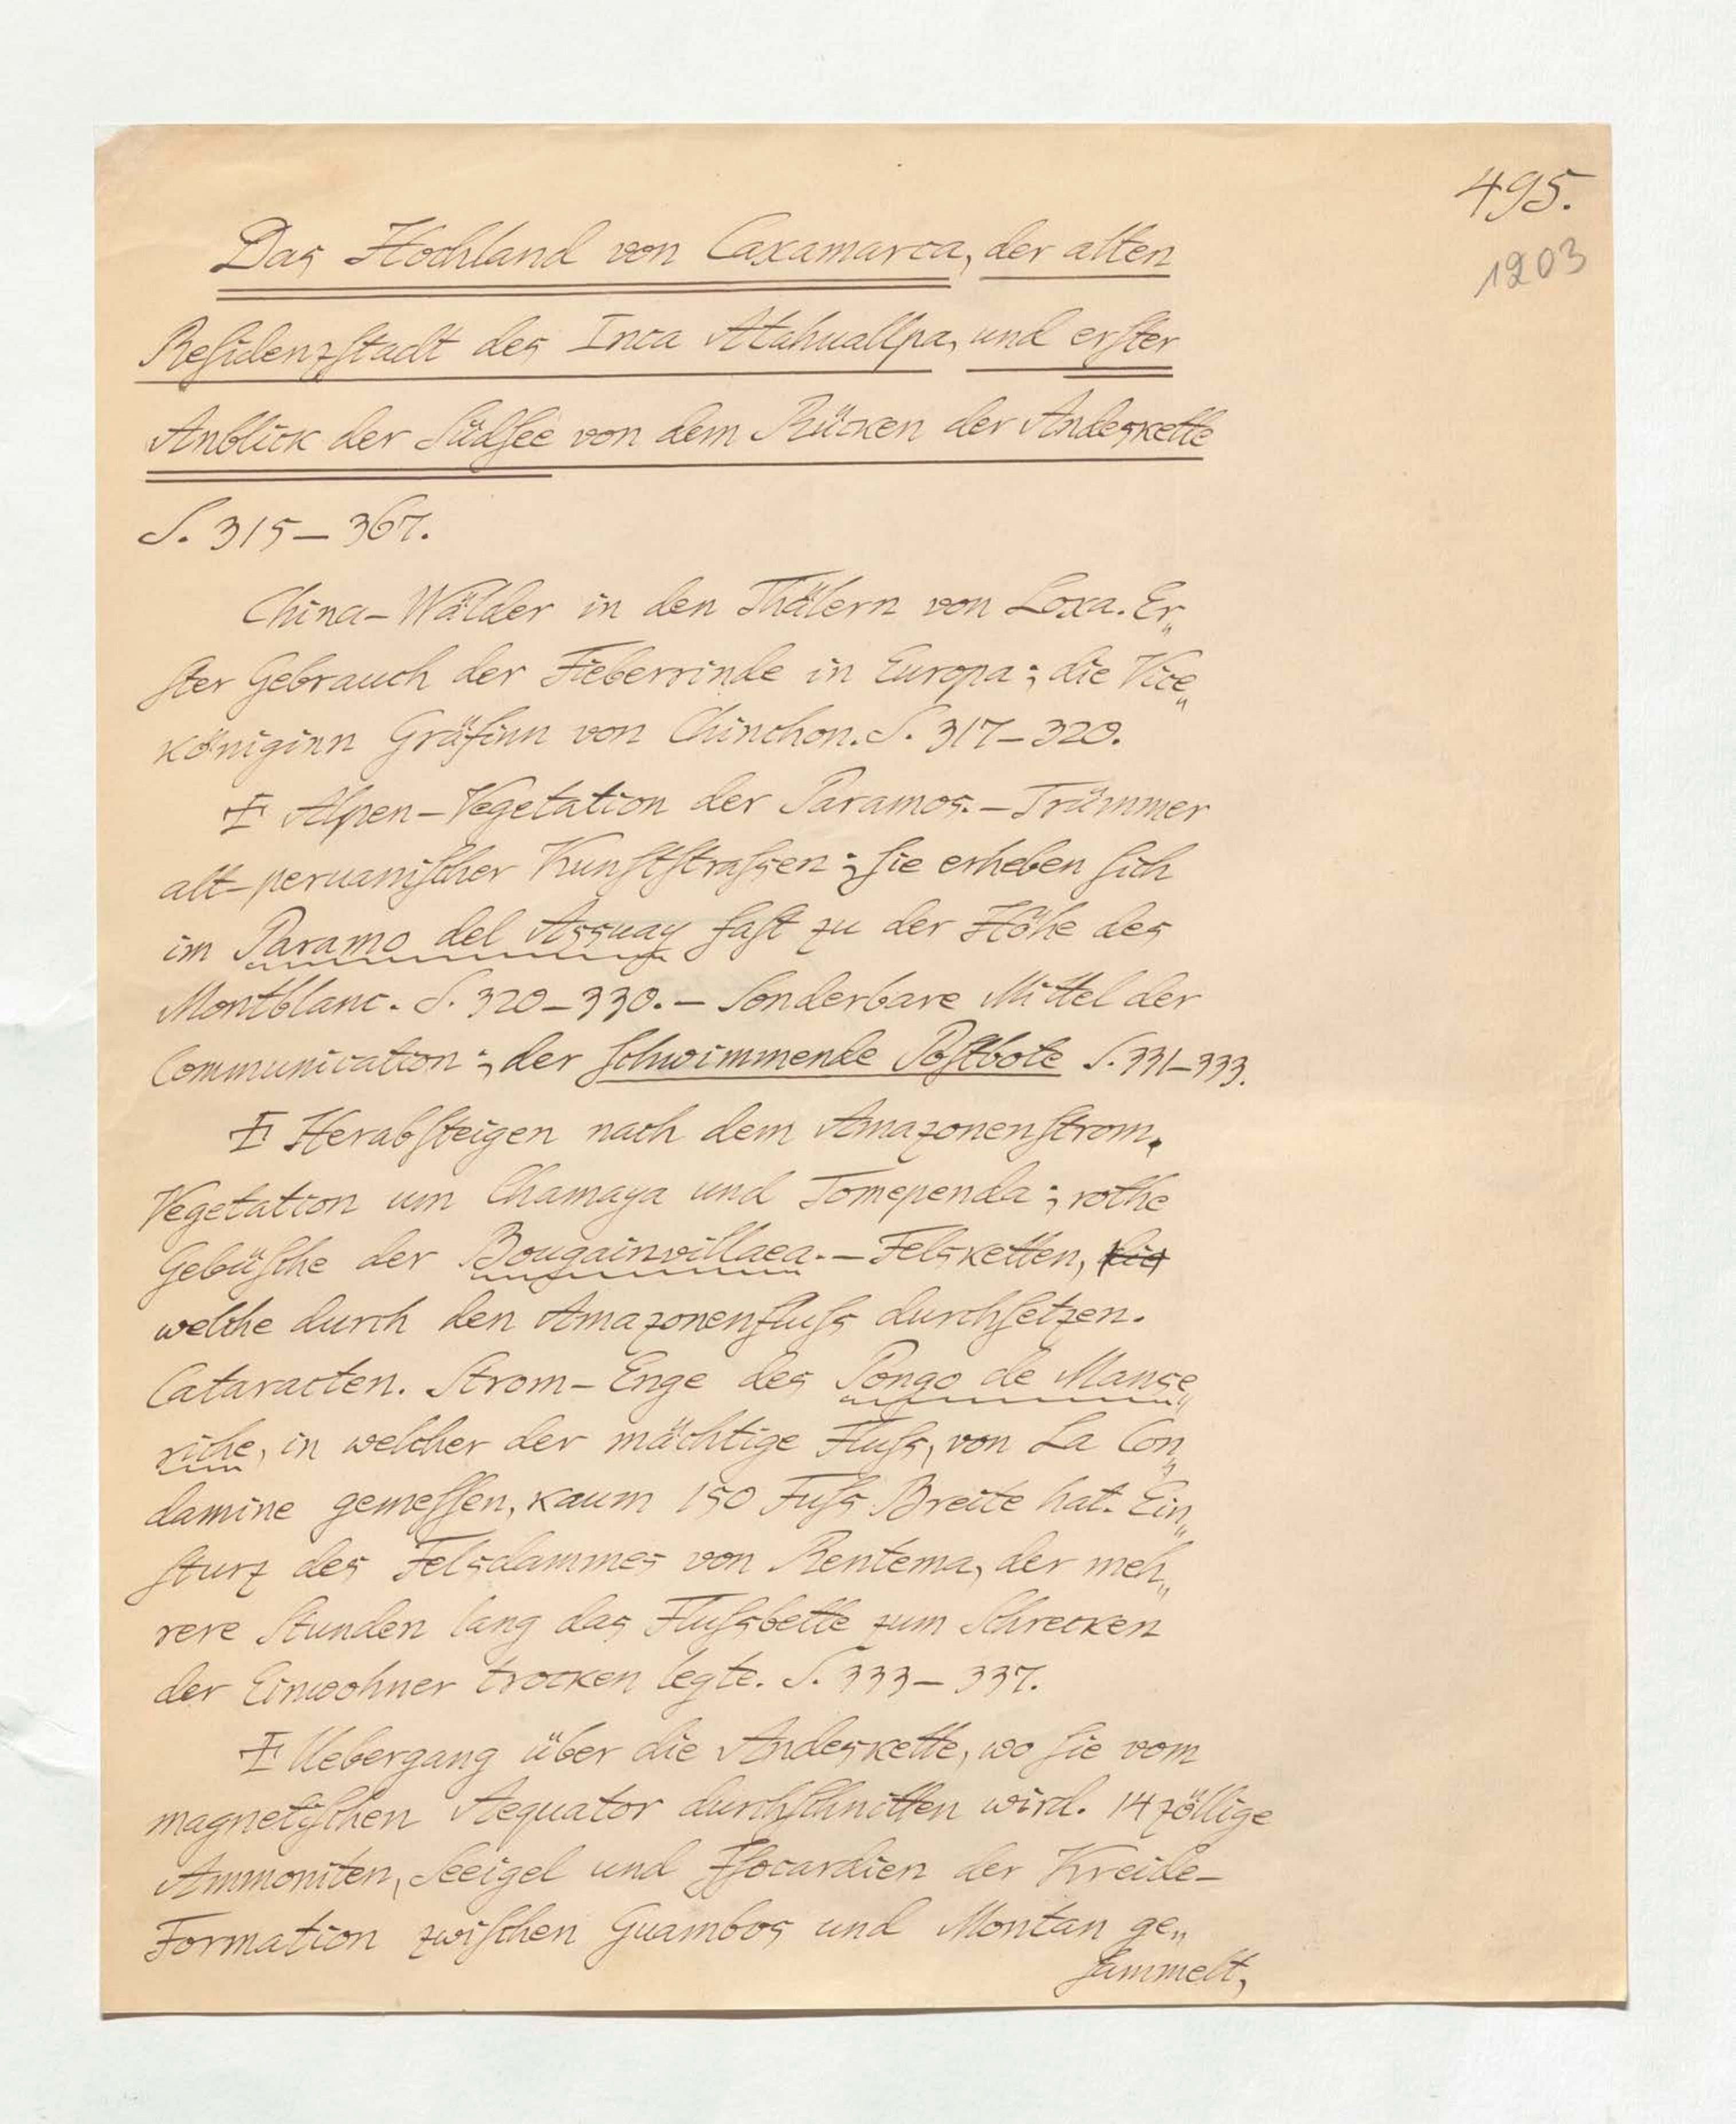 495.
1203
Das Hochland von Caxamarca, der alten
Reſidenzſtadt des Inca Atahuallpa, und erſter
Anblick der Südſee von dem Rücken der Andeskette
S. 315–367.
China-Wälder in den Thälern von Loxa. Er„
ſter Gebrauch der Fieberrinde in Europa; die Vice„
königinn Gräfinn von Chinchon. S. 317–320.
Alpen-Vegetation der Paramos. – Trümmer
alt-peruaniſcher Kunſtſtraſsen; ſie erheben ſich
im Paramo del Assuay faſt zu der Höhe des
Montblanc. S. 320–330. – Sonderbare Mittel der
Communication; der ſchwimmende Poſtbote S. 331–333.
Herabſteigen nach dem Amazonenſtrom.
Vegetation um Chamaya und Tomependa; rothe
Gebüſche der Bougainvillaea. – Felsketten,
welche durch den Amazonenfluſs durchſetzen.
Cataracten. Strom-Enge des Pongo de Manse„
riche, in welcher der mächtige Fluſs, von La Con„
damine gemeſſen, kaum 150 Fuſs Breite hat. Ein„
ſturz des Felsdammes von Rentema, der meh„
rere Stunden lang das Fluſsbette zum Schrecken
der Einwohner trocken legte. S. 333–337.
Uebergang über die Andeskette, wo ſie vom
magnetiſchen Aequator durchſchnitten wird. 14 zöllige
Ammoniten, Seeigel und Iſocardien der Kreide-
Formation zwiſchen Guambos und Montan ge„
ſammelt,